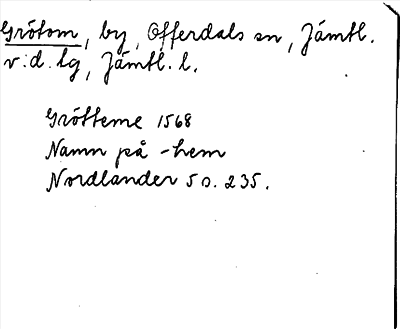 Grötom, by, Offerdals sn, Jämtl.
v:d. lg, Jämtl. l.
Grötteme 1568
Namn på -hem
Nordlander 5 s. 235.